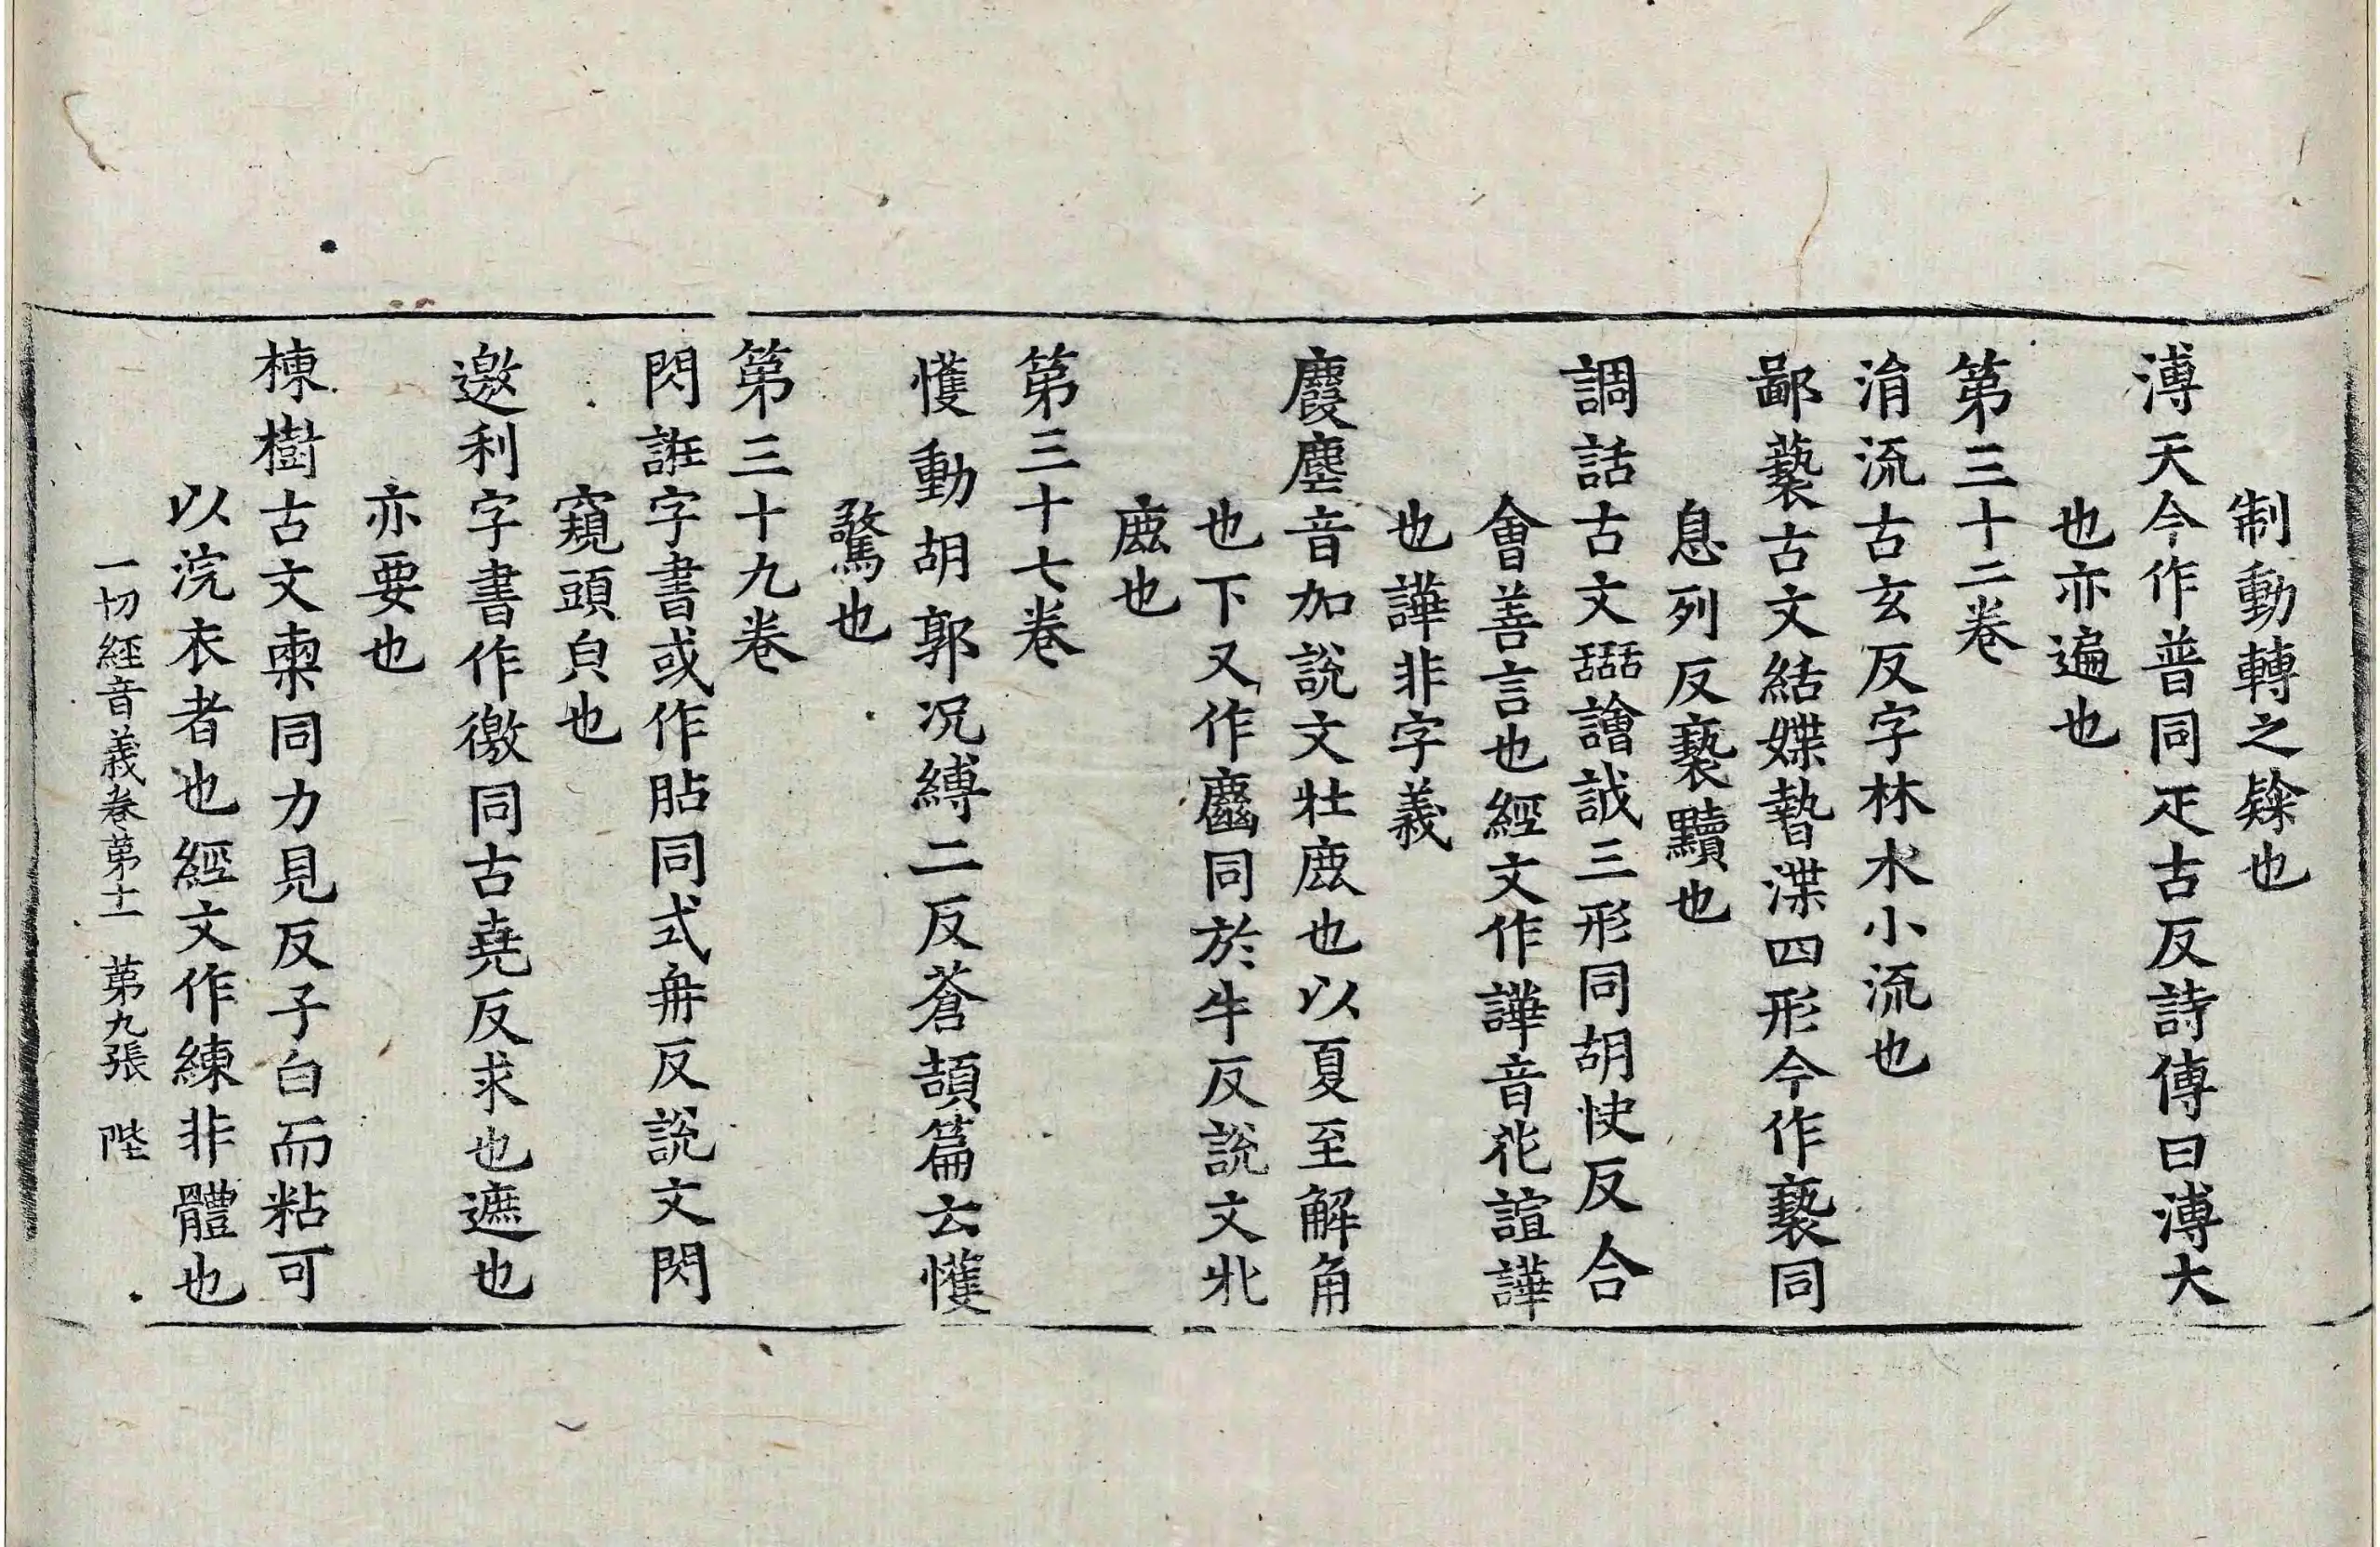 制動轉之䤥也
溥天今作普同疋古反詩傳曰溥大
也亦遍也
第三十二卷
涓流古玄反字林水小流也
鄙䙝古文結媟暬渫四形今作褻同
息列反褻黷也
調話古文𧮩譮䛡三形同胡快反合
會善言也經文作譁音花諠譁
也譁非字義
麚塵音加說文牡鹿也以夏至解角
也下又作麤同於牛反說文牝
鹿也
第三十七卷
戄動胡郭况縛二反蒼頡篇云戄
驚也
第三十九卷
閃誑字書或作貼同式冉反說文閃
窺頭皃也
邀利字書作徼同古堯反求也遮也
亦要也
楝樹古文㯥同力見反子白而粘可
以浣衣者也經文作練非體也
一切經音義卷第十一 第九張 陛